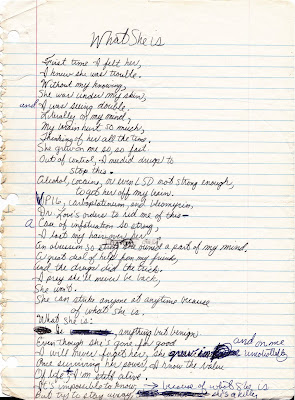 What She is
First time I felt her,
I knew she was trouble.
Without my knowing,
She was under my skin,
and I was seeing double.
Literally of my mind,
My brain hurt so much,
Thinking of her all the time.
She grew on me so, so fast
Out of control, I needed drugs to
stop this.
Alcohol, cocaine, or even LSD not strong enough,
to get her off my
VP16, carboplatinum, and bleomycin,
Dr. Love's orders to rid me of this—
A Case of infatuation so strong
I lost my hair over her
An obsession so she a part of my mind.
A great deal of help from my friend,
and the drugs did the trick.
I pray she'll never be back,
She won't.
She can strike anyone at anytime because
of what she is.
What She is:
anything but benign.
Even though she's gone for good
I will never forget her, she grew and on me uncontrollably
Once surviving her power, I know the value
Of life, I'm still alive.
It's impossible to know, because of what She is
But try to stay away, she's a killer